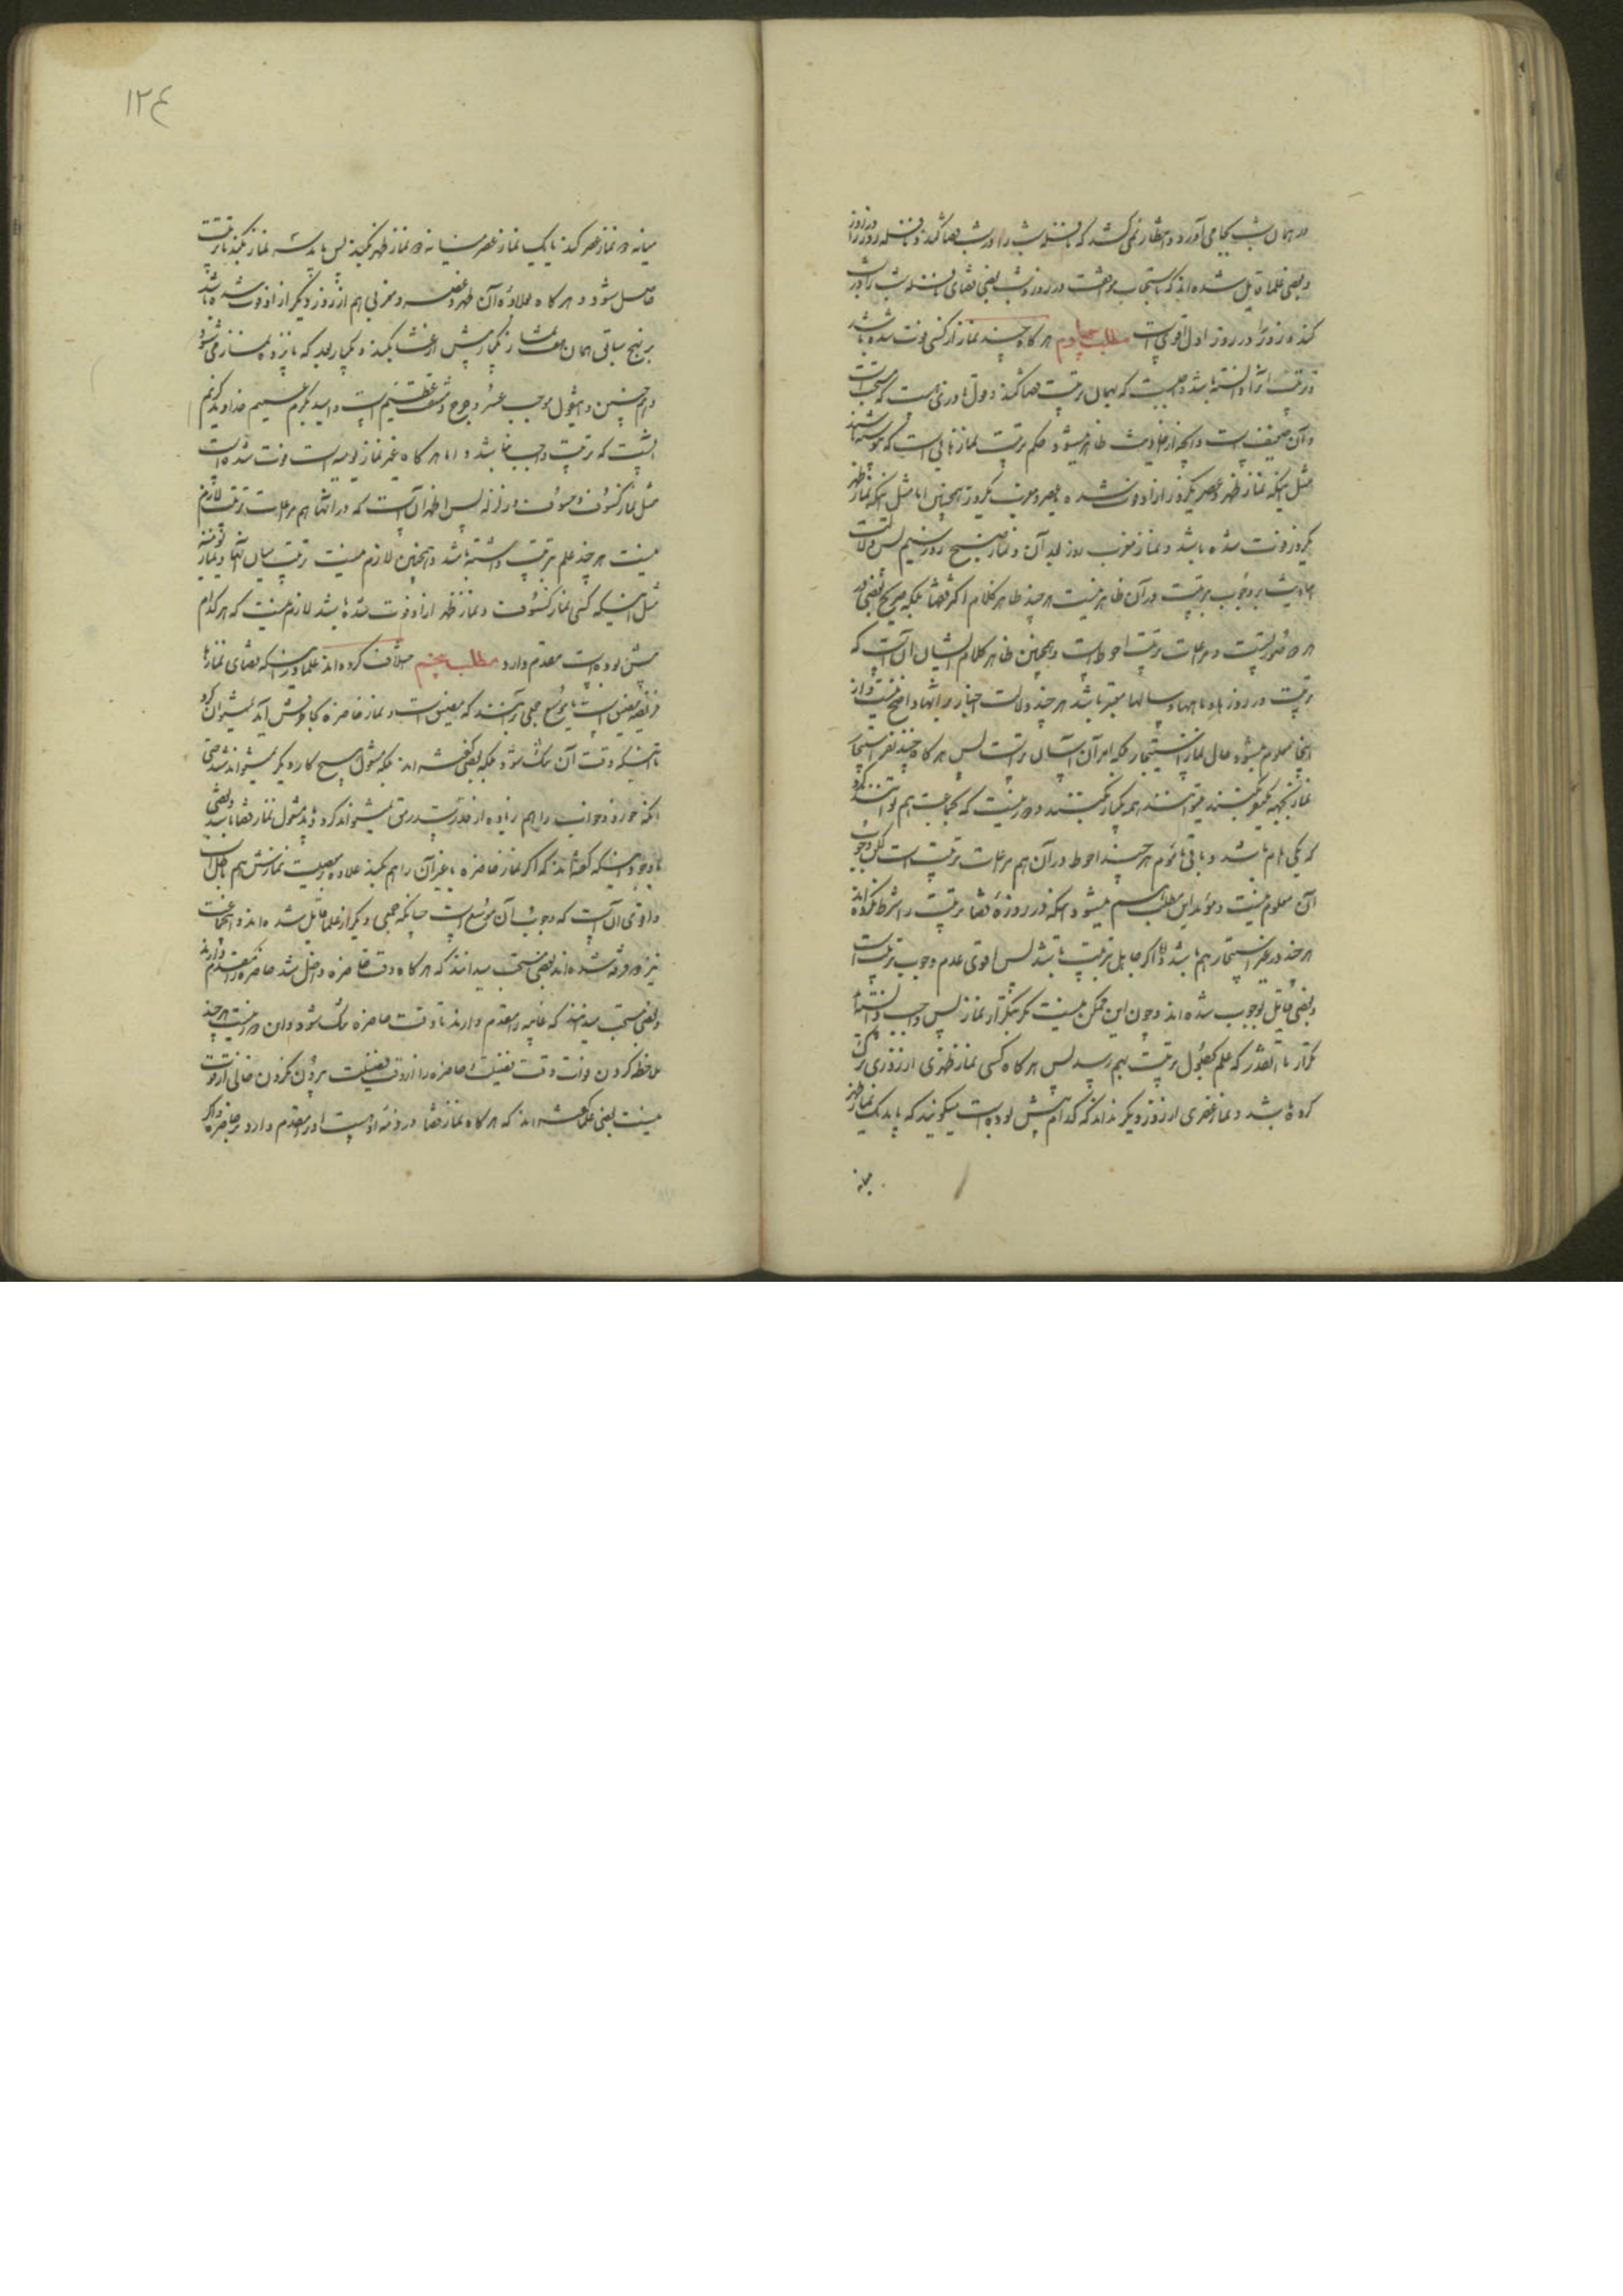 در همان شب بجا می آورد و انتظار نمی کشد که نافله شب را در شب قضا کند و نافله روز را در روز
و بعضی علما قایل شده اند که استحباب موافقت در روز و شب یعنی قضای نافله شب را در شب
کند و روز را در روز اول اقوی است مطلب چهارم هر گاه چند نماز از کسی فوت شده باشد
و ترتیب آنرا دانسته باشد واجبست که بهمان ترتیب قضا کند و قول نادری هست که مستحب است
و آن ضعیف است و آنچه از احادیث ظاهر میشود حکم ترتیب نماز هایی است که
مثل اینکه نماز ظهر و عصر یکروز از او فوت شده یا عصر و مغرب یکروز و همچنین اما مثل اینکه نماز ظهر
یکروز فوت شده باشد و نماز مغرب روز بعد آن و نماز صبح روز سیم پس دلالت
احادیث بر وجوب ترتیب در آن ظاهر نیست هر چند ظاهر کلام اکثر فقها بلکه صریح بعضی در
هر دو صورتست و مراعات ترتیب احوط است و همچنین ظاهر کلام ایشان آن است که
ترتیب در روز ها و ماهها و سالها معتبر باشد هر چند دلالت اخبار بر اینها واضح نیست و از
اینجا معلوم میشود حال نماز استیجار بلکه امر آن آسان تر است پس هر گاه چند نفر استیجار
نماز بجهه یکمیت بکنند میتوانند همه یکبار بکنند و ضرر نیست که بجماعت هم توانند کرد
که یکی امام باشد و باقی مأموم هر چند احوط در آن هم مراعات ترتیب است لکن وجوب
آن معلوم نیست و مؤید این مطلب میشود اینکه در روزهٔ قضا ترتیب را شرط نکرده اند
هر چند در غیر استیجار هم باشد و اگر جاهل بترتیب باشد پس اقوی عدم وجوب ترتیب است
و بعضی قایل بوجوب شده اند و چون این ممکن نیست مگر بتکرار نماز پس واجب دانسته اند
تکرار تا آنقدر که علم بحصول ترتیب بهم رسد پس هر گاه کسی نماز ظهری از روزی ترک
کرده باشد و نماز عصری از روز دیگر نداند که کدام پیش بوده است میگویند که باید یک نماز ظهر
میانه
۱۲۴
میانه دو نماز عصر کند یا یک نماز عصر میانه دو نماز ظهر بکند پس باید سه نماز بکند تا ترتیب
حاصل شود و هر گاه علاوهٔ آن ظهر و عصر و مغربی هم از روز دیگر از او فوت شده باشد
بر نهج سابق همان هفت نماز را یکبار پیش از عشا بکند و یکبار بعد که پانزده نماز میشود
و همچنین و اینقول موجب عسر و حرج و مشقت عظیم است و امید بکرم عمیم خداوند کریم
اینست که ترتیب واجب نباشد و اما هر گاه غیر نماز یومیه است فوت شده است
مثل نماز کسوف و خسوف و زلزله پس اظهر آن است که در آنها هم مراعات ترتیب لازم
نیست هر چند علم بترتیب داشته باشد و همچنین لازم نیست ترتیب میان آنها و نماز یومیه
مثل اینکه کسی نماز کسوف و نماز ظهر از او فوت شده باشد لازم نیست که هر کدام
پیش بوده است مقدم دارد مطلب پنجم خلاف کرده اند علما در اینکه قضای نمازها
فریضه مضیق است یا موسع جمعی بر آنند که مضیق است و نماز حاضره بجا نمیتوان کرد
تا اینکه وقت آن تنگ شود بلکه بعضی گفته اند بلکه مشغول هیچ کار دیگر نمیتواند شد حتی
آنکه خورد و خواب را هم زیاده از قدر سد رمق نمیتواند کرد و باید مشغول نماز قضا باشد و بعضی
با وجود اینکه گفته اند که اگر نماز حاضره یا غیر آن را هم بکند علاوه معصیت نمازش هم باطل است
و اقوی آن است که وجوب آن موسع است چنانکه جمعی دیگر از علما قایل شده اند و اینجماعت
نیز دو فرقه شده اند بعضی مستحب میدانند که هر گاه وقت حاضره داخل شد حاضره را مقدم دارند
و بعضی مستحب میدانند که فایته را مقدم دارند تا وقت حاضره تنگ شود و این دور نیست هر چند
ملاحظه کردن فوات وقت فضیلت حاضره را از وقت فضیلت بیرون نکردن خالی از قوت
نیست بعضی علما گفته اند که هر گاه نماز قضا در ذمه اوست او را مقدم دارد بر حاضره و اگر